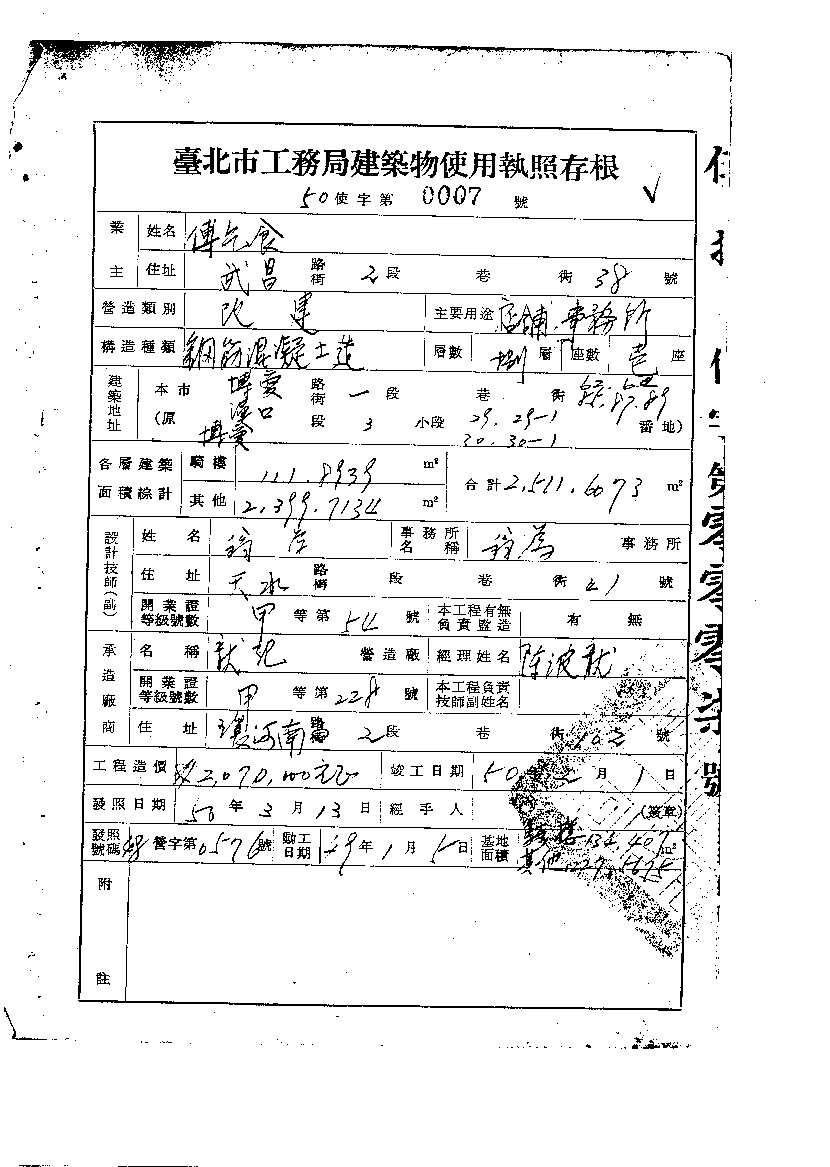 臺北市工務局建築物使用執照存根
50使字第 0007 號
業主 姓名
住址 武昌 路街 2段 巷 街 38 號
營造類別 改建 主要用途 店舖.事務所
構造種類 鋼筋混凝土造 層數 層 座數 壱 座
建築地址 本市 博愛 漢口 路街 一段 巷 街 85.87.89
(原 博愛 段 3 小段 29.29-1 30.30-1 番地)
各層建築面積綜計 騎樓 111.8939 m² 合計 2,511.6073 m²
其他 2,399.7134 m²
設計技師(副) 姓名 事務所名稱 事務所
住址 天水 路街 段 巷 街 41 號
開業證等級號數 甲 等第 54 號 本工程有無負責監造 有 無
承造廠商 名稱 營造廠 經理姓名 陳波
開業證等級號數 甲 等第 228 號 本工程負責技師副姓名
住址 河南 路街 2段 巷 街 號
工程造價 2,070,000元 竣工日期 50年 2月 1日
發照日期 50年 3月 13日 經手人 (簽章)
發照號碼 48 營字第 0576 號 動工日期 49年 1月 5日 基地面積 騎樓 134.407 m²
其他
附註
使字第零零零柒號